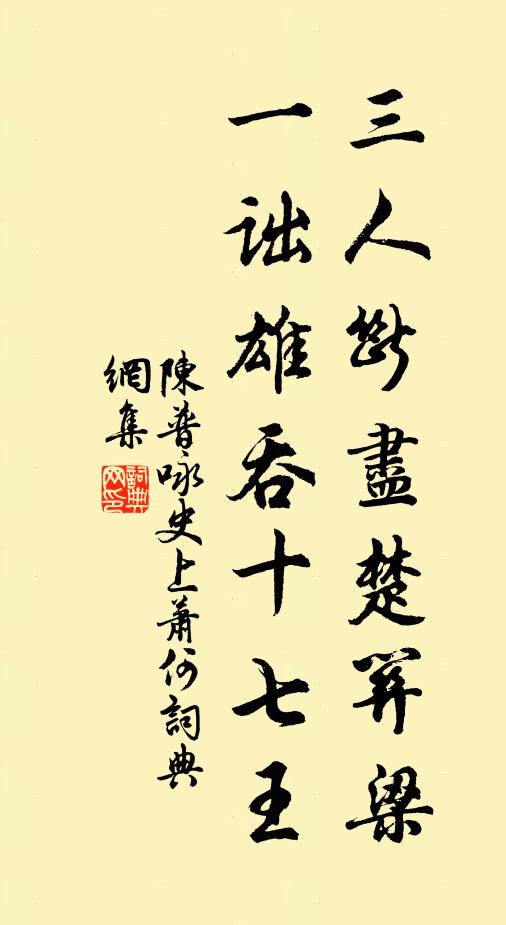 三人斷盡楚關梁
一詘雄吞十七王
陳普詠史上蕭何詞典
網集
詞典
网印